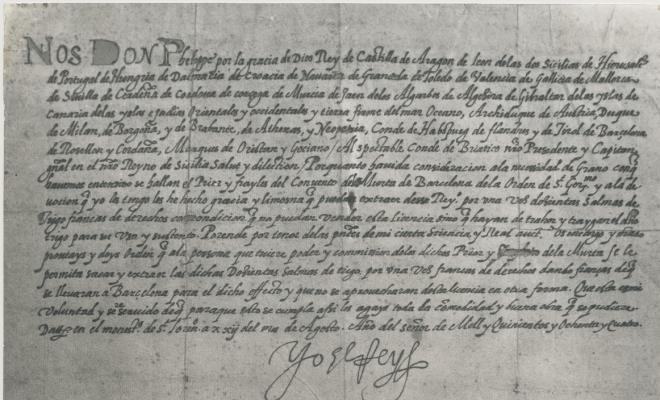 NOS DON Phelippe por la gracia de Dios Rey de Castilla de Aragon de leon delas dos Sicilias de Hierusalem
de Portugal de Hungria de Dalmatia de Croacia de Navarra de Granada de Toledo de Valencia de Gallizia de Mallorca
de Sevilla de Cordeña de Cordova de corcega de Murcia de Jaen delos Algarbes de Algezira de Gibraltar delas yslas de
Canaria delas yslas e Indias Orientales y occidentales y tierra firme del mar Oceano, Archiduque de Austria, Duque
de Milan, de Borgoña, y de Brabante, de Athenas, y Neopatria, Conde de Habspurg de flandes y de Tirol de Barcelona
de Rosellon y Cerdaña, Marques de Oristan y Gociano / Al spectable Conde de Briatico nro Presidente y Capitan
gnal en el nro Reyno de Sicilia Salud y dilection / Porquanto havida consideracion ala necesidad de Grano conq
se hallan el Prior y frayles del Convento dela Murta de Barcelona dela Orden de St. Gormo. y ala de
vocion q yo la tengo les he hecho gracia y limosna q puedan extraer desse Rey. por una vez dosientas Salmas de
trigo francas de derechos con condicion q no puedan vender esta licencia sino q hayan de traher el dho
trigo para su uso y sustento. Porende por tenor delas pntes de mi cierta sciencia y Real auct. os encargo y
y doys orden q ala persona que tuviere poder y commission delos dichos Prior y dela Murta se le
permita sacar y extraer las dichas Dosientas salmas de trigo, por una vez francas de derecho dando fianças deq
se llevaran a Barcelona para el dicho effecto y que no se aprovecharan desta licencia en otra forma. Que esta es mi
voluntad y se servido deq paraque esto se cumpla assi les agays toda la comodidad y buena obra q se pudiere.
Dat. en el monestº. de st. loren. a xxij del mes de Agosto. Año del señor de Mill y Quinientos y Ochenta y Cuatro.
Yo el Rey